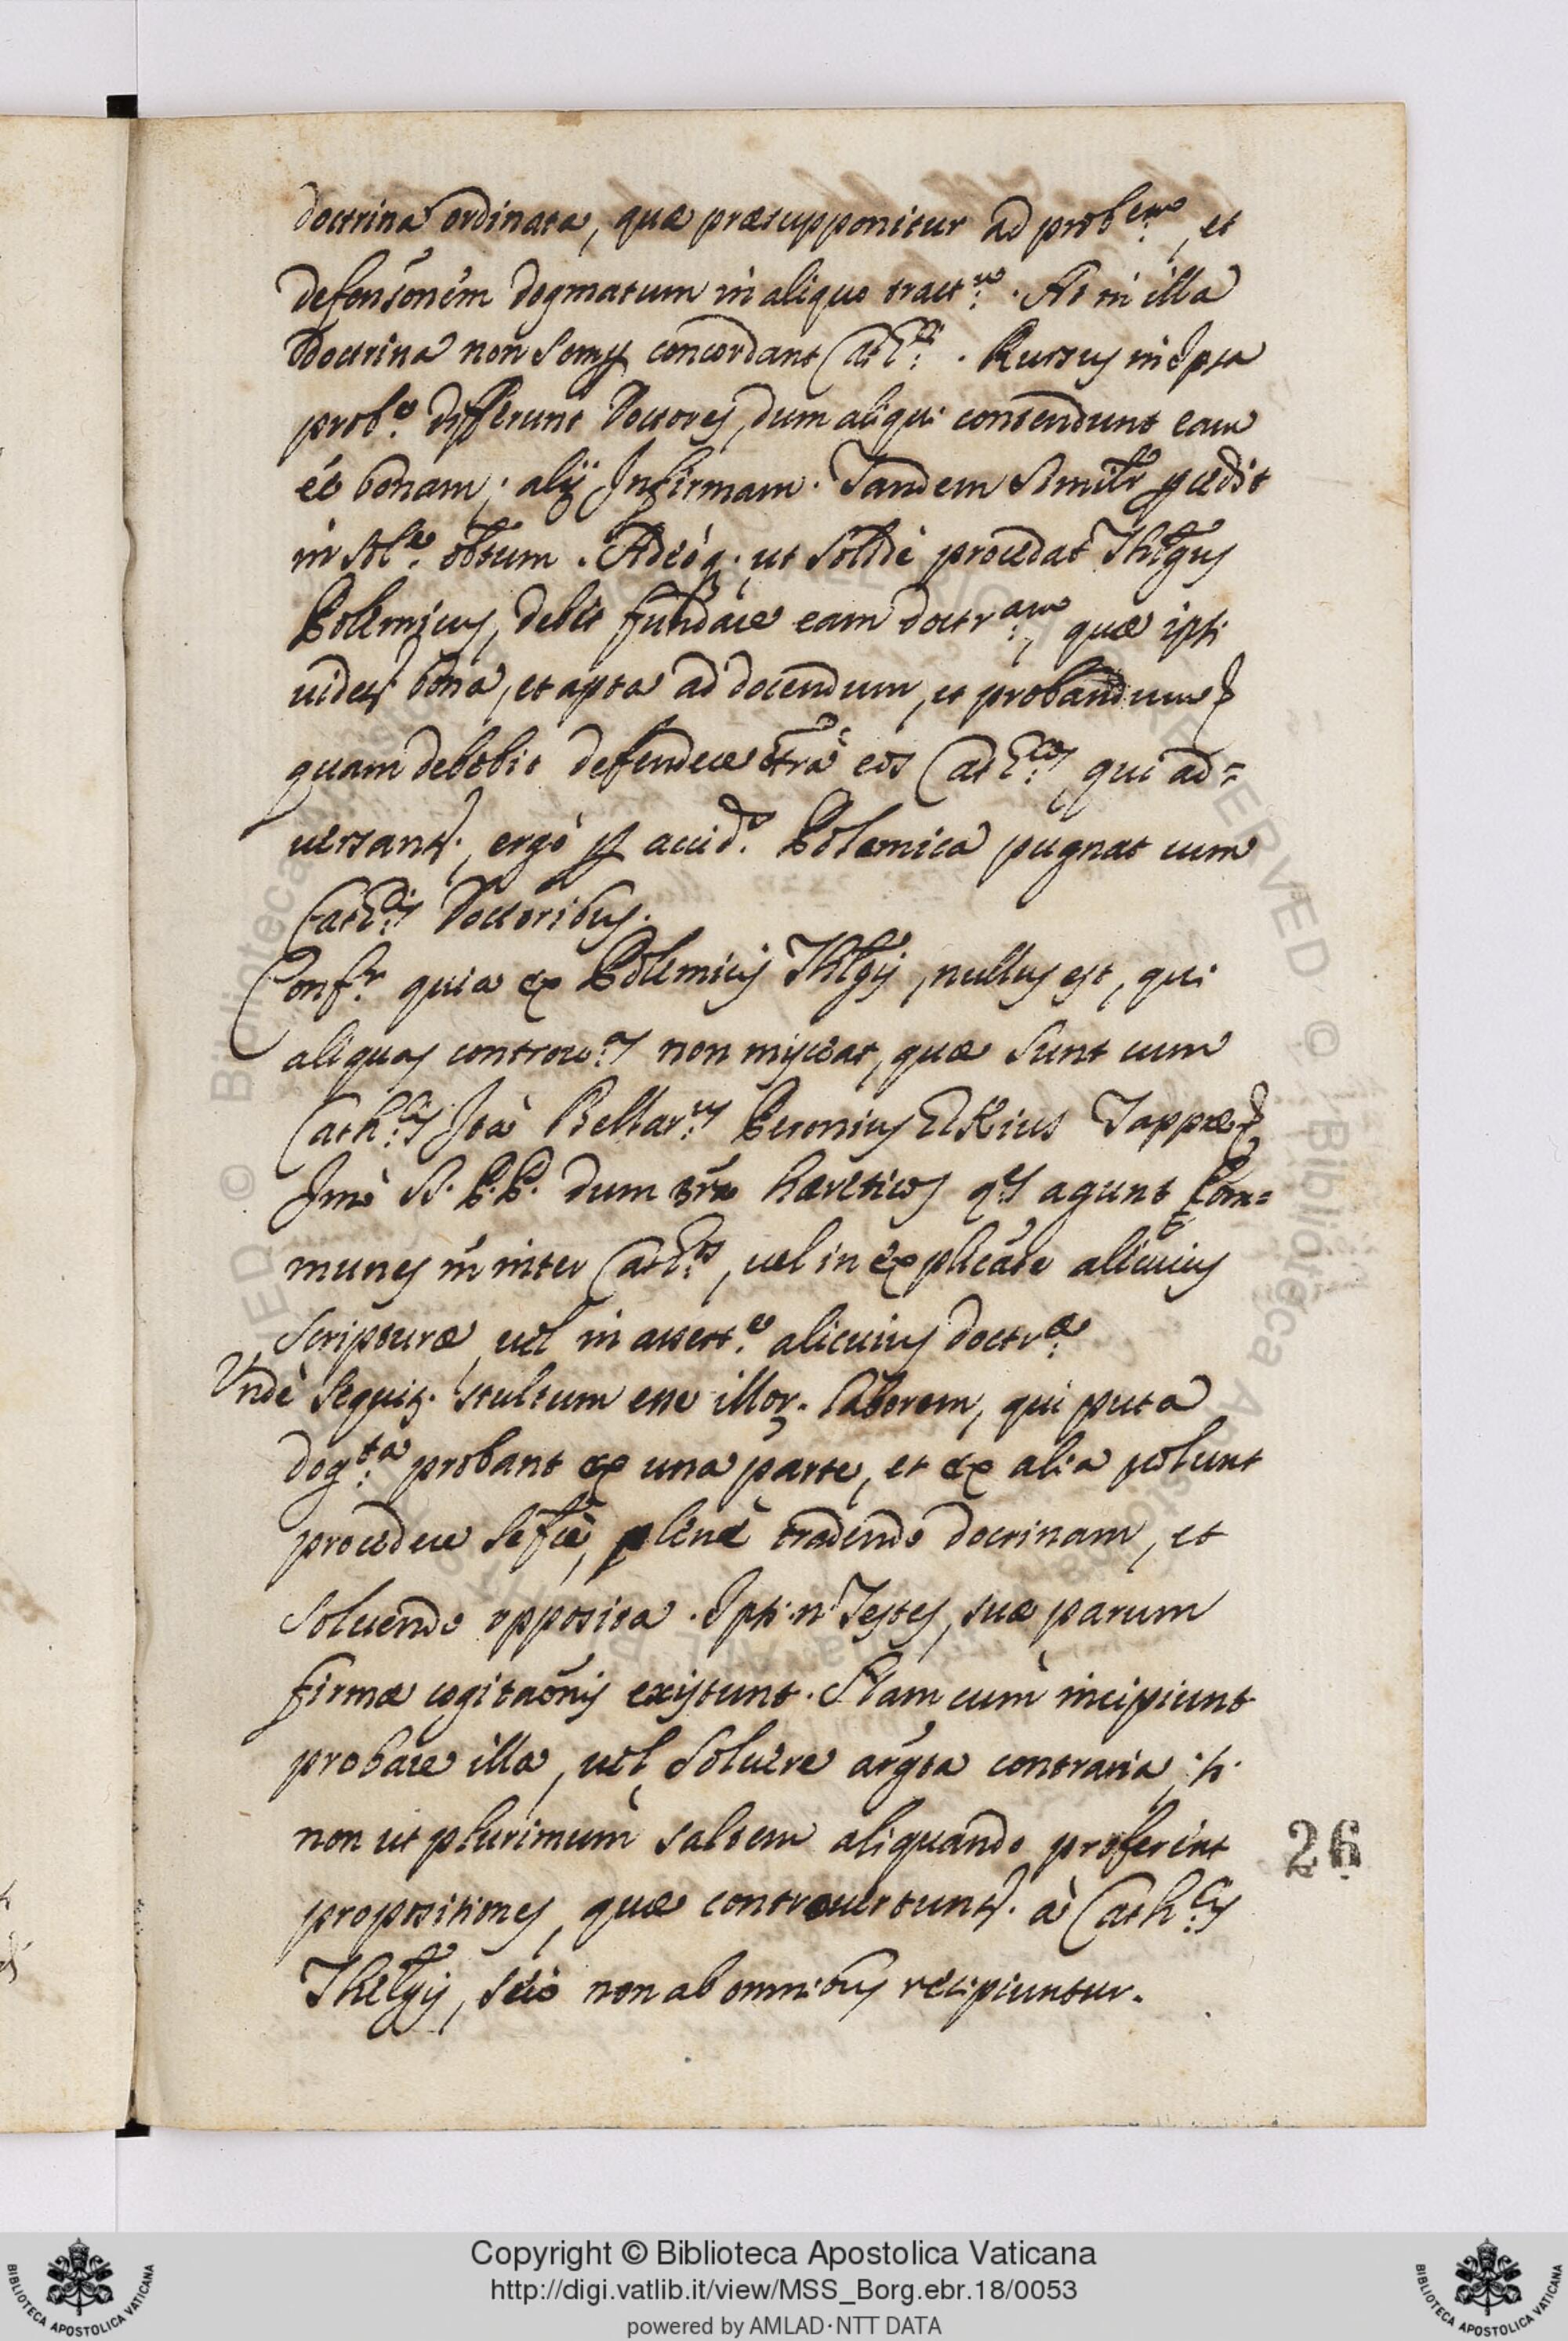 doctrina ordinata, quæ præsupponitur ad prob:em, et
defensõnem dogmatum in aliquo tract:u. At in illa
Doctrina non semp concordant Cath:ci. Rursus in ipsa
prob:e differunt Doctores, dum aliqui contendunt eam
ẽe bonam; alij Infirmam. Tandem Similr̃ p̱cedit
in sol:e obtum. Adeóq; ut solidè procedat Thlg̃us
Polemicus, debet fundare eam doctr:am, quæ ipsi
uidetr bona, et apta ad docendum, et probandum,
quam debebit defendere c̃trà eos Cath:cos qui ad=
uersantr., ergò p accid:s Polemica pugnat cum
Cath:cis Doctoribus.
Conf:r quia ex Polemicis Thlg̃is, nullus est, qui
aliquas controu:as non misceat, quæ sunt cum
Cath:cis Ità Bellar:us Peronius Ekius Tapper
Imò SS. P.P. dum c̃tra hæreticos q:es agunt Com=
munes in inter Cath:cos, uel in explicãde alicuius
Scripturæ, uel in assert:e alicuius doctr:æ
Vndè sequitr. stultum esse illor. laborem, qui puta
dog:ta probant ex una parte, et ex alia uolunt
procedere Sc̃fcè, plenè tradendo doctrinam, et
soluendo opposita. Ipsi .n. Testes, suæ parum
firmæ cogitaõnis existunt. Nam cum incipiunt
probare illa, uel soluere arg̃ta contraria, si
non ut plurimùm saltem aliquando proferent
propositiones, quæ controuertuntr. à Cath:cis
Thelg̃is, seu non ab omnibus recipiuntur.
26
Copyright © Biblioteca Apostolica Vaticana
http://digi.vatlib.it/view/MSS_Borg.ebr.18/0053
powered by AMLAD·NTT DATA
BIBLIOTECA APOSTOLICA VATICANA
BIBLIOTECA APOSTOLICA VATICANA